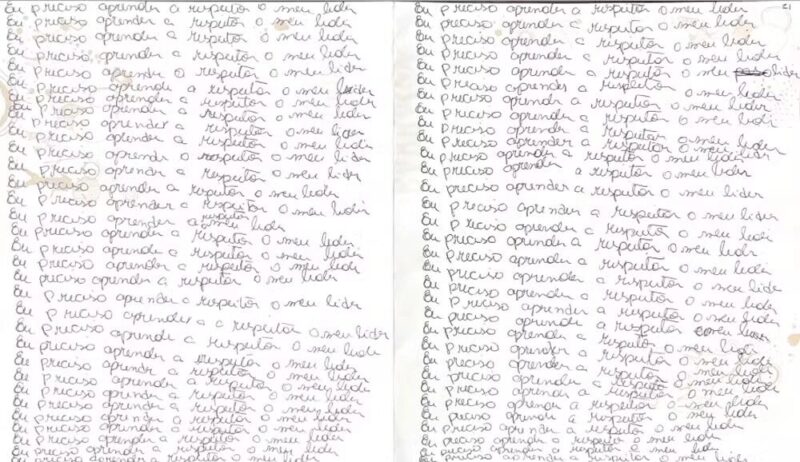 Eu preciso aprender a respeitar o meu lider
Eu preciso aprender a respeitar o meu lider
Eu preciso aprender a respeitar o meu lider
Eu preciso aprender a respeitar o meu lider
Eu preciso aprender a respeitar o meu lider
Eu preciso aprender a respeitar o meu lider
Eu preciso aprender a respeitar o meu lider
Eu preciso aprender a respeitar o meu lider
Eu preciso aprender a respeitar o meu lider
Eu preciso aprender a respeitar o meu lider
Eu preciso aprender a respeitar o meu lider
Eu preciso aprender a respeitar o meu lider
Eu preciso aprender a respeitar o meu lider
Eu preciso aprender a respeitar o meu lider
Eu preciso aprender a respeitar o meu lider
Eu preciso aprender a respeitar o meu lider
Eu preciso aprender a respeitar o meu lider
Eu preciso aprender a respeitar o meu lider
Eu preciso aprender a respeitar o meu lider
Eu preciso aprender a respeitar o meu lider
Eu preciso aprender a respeitar o meu lider
Eu preciso aprender a respeitar o meu lider
Eu preciso aprender a respeitar o meu lider
Eu preciso aprender a respeitar o meu lider
Eu preciso aprender a respeitar o meu lider
Eu preciso aprender a respeitar o meu lider
Eu preciso aprender a respeitar o meu lider
Eu preciso aprender a respeitar o meu lider
Eu preciso aprender a respeitar o meu lider
Eu preciso aprender a respeitar o meu lider
21
Eu preciso aprender a respeitar o meu lider
Eu preciso aprender a respeitar o meu lider
Eu preciso aprender a respeitar o meu lider
Eu preciso aprender a respeitar o meu lider
Eu preciso aprender a respeitar o meu lider
Eu preciso aprender a respeitar o meu lider
Eu preciso aprender a respeitar o meu lider
Eu preciso aprender a respeitar o meu lider
Eu preciso aprender a respeitar o meu lider
Eu preciso aprender a respeitar o meu lider
Eu preciso aprender a respeitar o meu lider
Eu preciso aprender a respeitar o meu lider
Eu preciso aprender a respeitar o meu lider
Eu preciso aprender a respeitar o meu lider
Eu preciso aprender a respeitar o meu lider
Eu preciso aprender a respeitar o meu lider
Eu preciso aprender a respeitar o meu lider
Eu preciso aprender a respeitar o meu lider
Eu preciso aprender a respeitar o meu lider
Eu preciso aprender a respeitar o meu lider
Eu preciso aprender a respeitar o meu lider
Eu preciso aprender a respeitar o meu lider
Eu preciso aprender a respeitar o meu lider
Eu preciso aprender a respeitar o meu lider
Eu preciso aprender a respeitar o meu lider
Eu preciso aprender a respeitar o meu lider
Eu preciso aprender a respeitar o meu lider
Eu preciso aprender a respeitar o meu lider
Eu preciso aprender a respeitar o meu lider
Eu preciso aprender a respeitar o meu lider
Eu preciso aprender a respeitar o meu lider